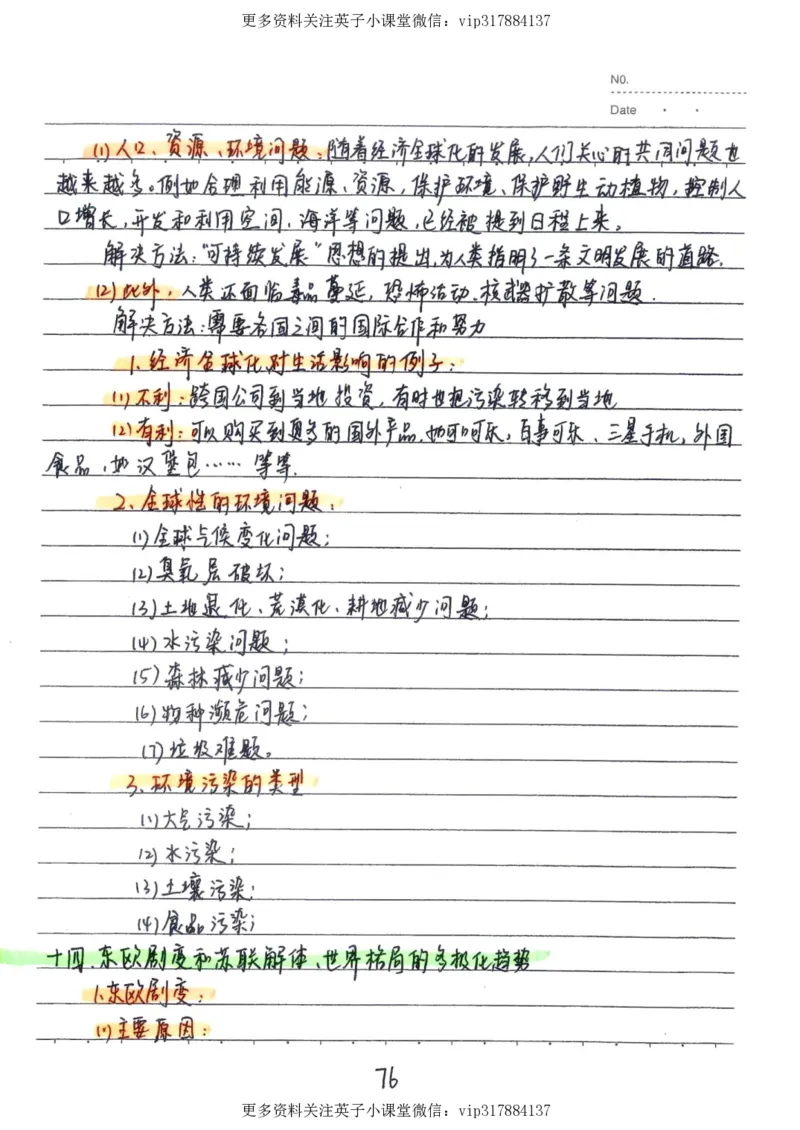 更多资料关注英子小课堂微信：vip317884137
NO.
Date
(1)人口、资源、环境问题：随着经济全球化的发展，人们关心的共同问题也
越来越多。例如合理利用能源、资源，保护环境、保护野生动植物，控制人
口增长，开发和利用空间、海洋等问题，已经被提到日程上来。
解决方法：“可持续发展”思想的提出，为人类指明了一条文明发展的道路.
(2)此外，人类还面临毒品蔓延，恐怖活动、核武器扩散等问题.
解决方法：需要各国之间的国际合作和努力
1.经济全球化对生活影响的例子：
(1)不利：跨国公司到当地投资，有时也把污染转移到当地
(2)有利：可以购买到更多的国外产品，如可口可乐，百事可乐、三星手机，外国
食品，如汉堡包……等等.
2、全球性的环境问题：
(1)全球气候变化问题；
(2)臭氧层破坏；
(3)土地退化、荒漠化、耕地减少问题；
(4)水污染问题；
(5)森林减少问题；
(6)物种濒危问题；
(7)垃圾难题。
3、环境污染的类型
(1)大气污染；
(2)水污染；
(3)土壤污染；
(4)食品污染；
十四、东欧剧变和苏联解体、世界格局的多极化趋势
1、东欧剧变：
(1)主要原因：
76
更多资料关注英子小课堂微信：vip317884137